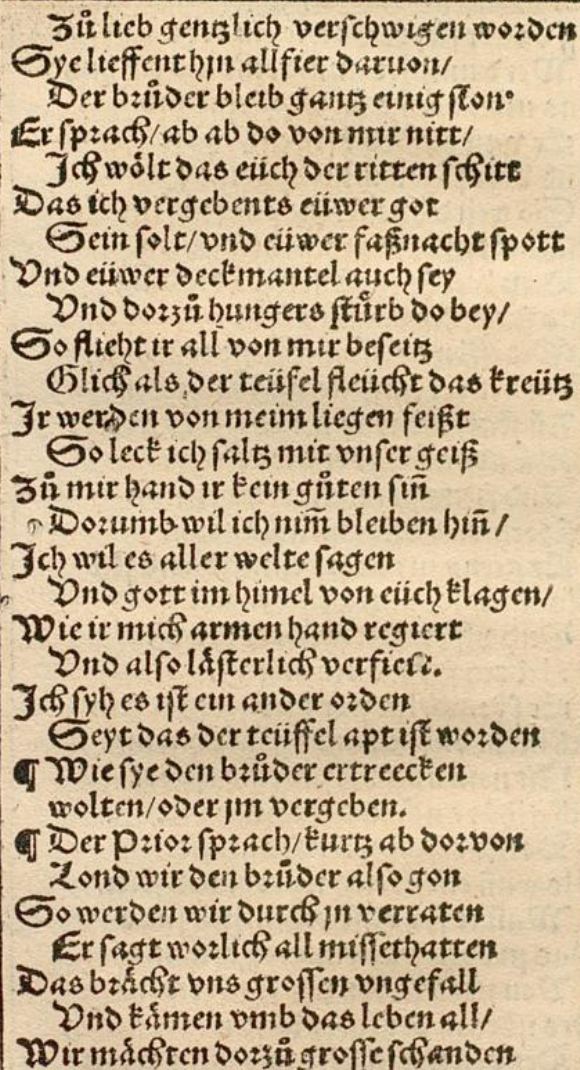 Zů lieb gentzlich verschwigen worden
Sye lieffent hyn all fier daruon/
Der brůder bleib gantz einig ston·
Er sprach/ab ab do von mir nitt/
Ich wölt das eüch der ritten schitt
Das ich vergebents eüwer got
Sein solt/vnd eüwer faßnacht spott
Vnd eüwer deckmantel auch sey
Vnd dorzů hungers stůrb do bey/
So flieht ir all von mir beseitz
Glich als der teüfel fleücht das kreütz
Ir werden von meim liegen feißt
So leck ich saltz mit vnser geiß
Zů mir hand ir kein gůten siñ
Dorumb wil ich nim̄ bleiben hiñ/
Ich wil es aller welte sagen
Vnd gott im himel von eüch klagen/
Wie ir mich armen hand regiert
Vnd also lästerlich verfiert.
Ich syh es ist ein ander orden
Seyt das der teüffel apt ist worden
¶ Wie sye den brůder ertreecken
wolten/oder jm vergeben.
¶ Der Prior sprach/kurtz ab dorvon
Lond wir den brůder also gon
So werden wir durch jn verraten
Er sagt worlich all missethatten
Das brächt vns grossen vngefall
Vnd kämen vmb das leben all/
Wir mächten dorzů grosse schanden